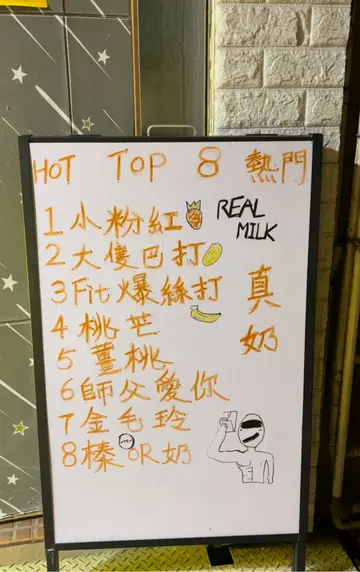 HOT TOP 8 熱門
1 小粉紅
REAL
MILK
2 大隻巴打
3 Fit爆絲打
真
奶
4 桃芒
5 薑桃
6 師父愛你
7 金毛玲
8 榛 OR 奶